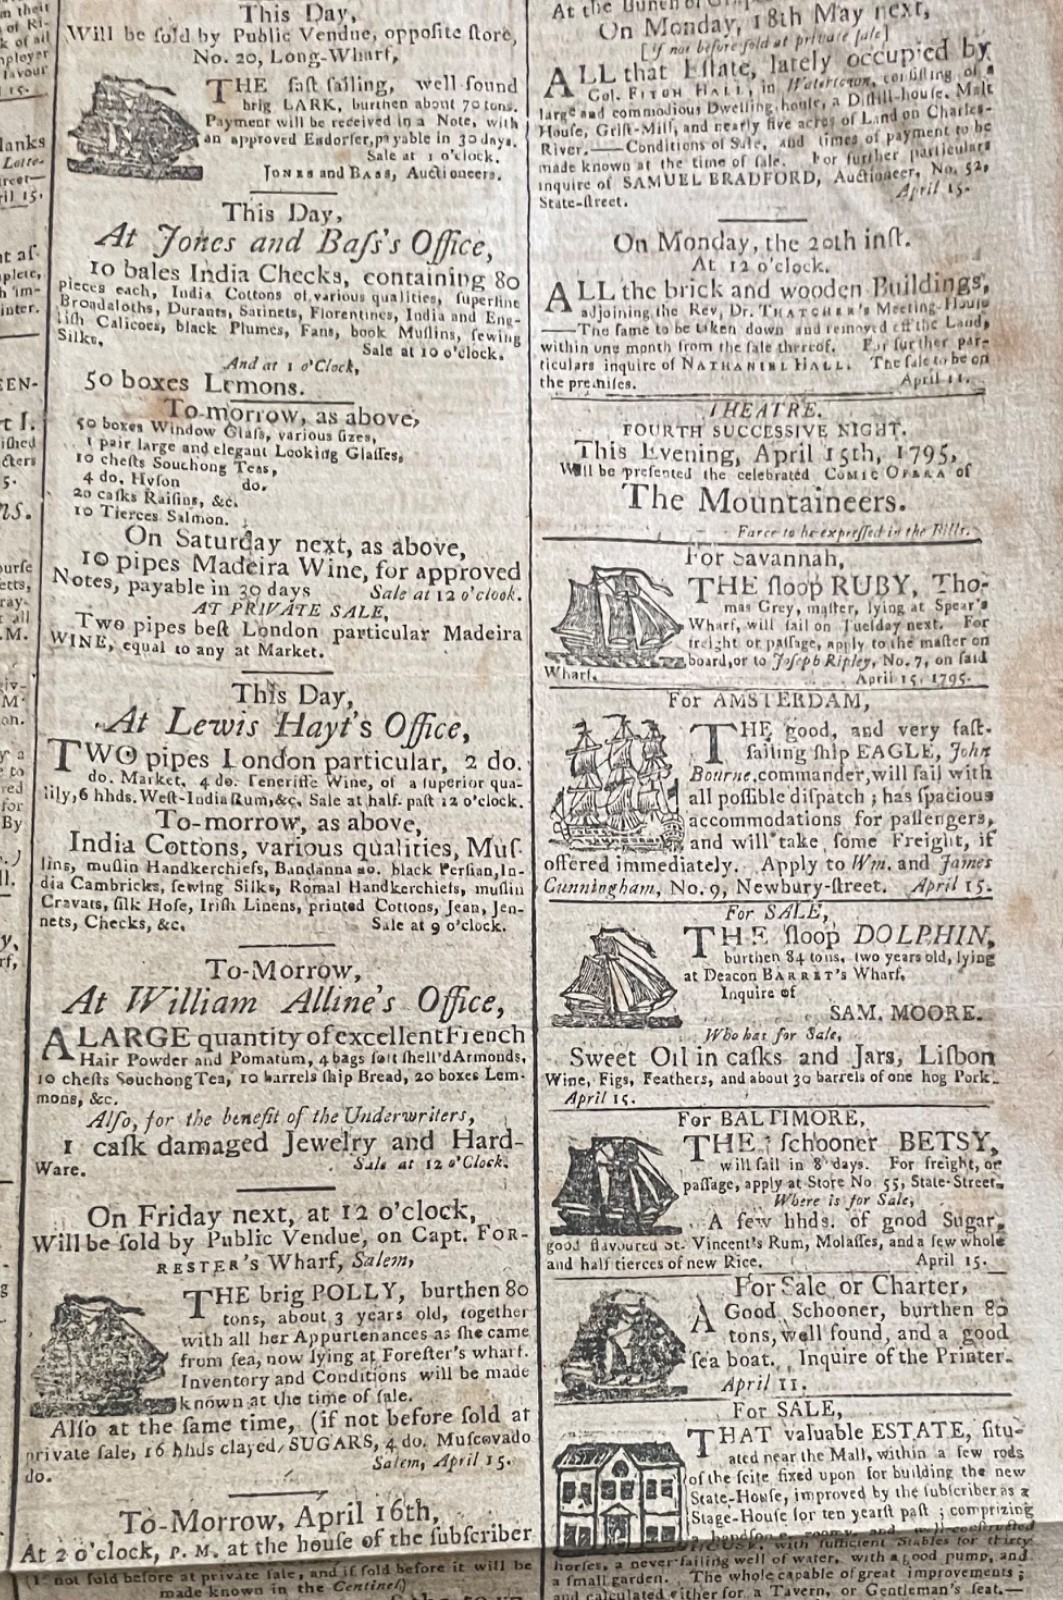 This Day,
Will be ſold by Public Vendue, oppoſite ſtore,
No. 20, Long-Wharf,
THE faſt ſailing, well-found
brig LARK, burthen about 70 tons.
Payment will be received in a Note, with
an approved Endorſer, payable in 30 days.
Sale at 1 o'clock.
JONES and BASS, Auctioneers.
This Day,
At Jones and Baſs's Office,
10 bales India Checks, containing 80
pieces each, India Cottons of various qualities, ſuperfine
Broadcloths, Durants, Satinets, Florentines, India and Eng-
liſh Calicoes, black Plumes, Fans, book Muſlins, ſewing
Silks.
Sale at 10 o'clock.
And at 1 o'Clock,
50 boxes Lemons.
To-morrow, as above,
50 boxes Window Glaſs, various ſizes,
1 pair large and elegant Looking Glaſſes,
10 cheſts Souchong Teas,
4 do. Hyſon do.
20 caſks Raiſins, &c.
10 Tierces Salmon.
On Saturday next, as above,
10 pipes Madeira Wine, for approved
Notes, payable in 30 days Sale at 12 o'clock.
AT PRIVATE SALE,
Two pipes beſt London particular Madeira
WINE, equal to any at Market.
This Day,
At Lewis Hayt's Office,
TWO pipes London particular, 2 do.
do. Market, 4 do. Teneriffe Wine, of a ſuperior qua-
lily, 6 hhds. Weſt-India Rum, &c. Sale at half-paſt 12 o'clock.
To-morrow, as above,
India Cottons, various qualities, Muſ-
lins, muſlin Handkerchiefs, Bandanna do. black Perſian, In-
dia Cambricks, ſewing Silks, Romal Handkerchiefs, muſlin
Cravats, ſilk Hoſe, Iriſh Linens, printed Cottons, Jean, Jen-
nets, Checks, &c. Sale at 9 o'clock.
To-Morrow,
At William Alline's Office,
A LARGE quantity of excellent French
Hair Powder and Pomatum, 4 bags ſoft ſhell'd Armonds,
10 cheſts Souchong Tea, 10 barrels ſhip Bread, 20 boxes Lem-
mons, &c.
Alſo, for the benefit of the Underwriters,
1 caſk damaged Jewelry and Hard-
Ware. Sale at 12 o'Clock.
On Friday next, at 12 o'clock,
Will be ſold by Public Vendue, on Capt. FOR-
RESTER'S Wharf, Salem,
THE brig POLLY, burthen 80
tons, about 3 years old, together
with all her Appurtenances as ſhe came
from ſea, now lying at Foreſter's wharf.
Inventory and Conditions will be made
known at the time of ſale.
Alſo at the ſame time, (if not before ſold at
private ſale, 16 hhds clayed SUGARS, 4 do. Muſcovado
do. Salem, April 15.
To-Morrow, April 16th,
At 2 o'clock, P. M. at the houſe of the ſubſcriber
not ſold before at private ſale, and if ſold before it will be
made known in the Centinel)
On Monday, 18th May next,
[if not before ſold at private ſale]
ALL that Eſtate, lately occupied by
Col. FITCH HALL, in Watertown, conſiſting of a
large and commodious Dwelling-houſe, a Diſtill-houſe, Malt
Houſe, Griſt-Mill, and nearly five acres of Land on Charles-
River.——Conditions of Sale, and times of payment to be
made known at the time of ſale. For further particulars
inquire of SAMUEL BRADFORD, Auctioneer, No. 52,
State-ſtreet. April 15.
On Monday, the 20th inſt.
At 12 o'clock.
ALL the brick and wooden Buildings,
adjoining the Rev. Dr. THATCHER'S Meeting-Houſe
——The ſame to be taken down and removed off the Land,
within one month from the ſale thereof. For further par-
ticulars inquire of NATHANIEL HALL. The ſale to be on
the premiſes. April 11.
THEATRE.
FOURTH SUCCESSIVE NIGHT.
This Evening, April 15th, 1795,
Will be preſented the celebrated COMIC OPERA of
The Mountaineers.
Farce to be expreſſed in the Bills.
For Savannah,
THE ſloop RUBY, Tho-
mas Grey, maſter, lying at Spear's
Wharf, will ſail on Tueſday next. For
freight or paſſage, apply to the maſter on
board, or to Joſeph Ripley, No. 7, on ſaid
Wharf. April 15, 1795.
For AMSTERDAM,
THE good, and very faſt-
ſailing ſhip EAGLE, John
Bourne, commander, will ſail with
all poſſible diſpatch; has ſpacious
accommodations for paſſengers,
and will take ſome Freight, if
offered immediately. Apply to Wm. and James
Cunningham, No. 9, Newbury-ſtreet. April 15.
For SALE,
THE ſloop DOLPHIN,
burthen 84 tons, two years old, lying
at Deacon BARRET'S Wharf,
Inquire of
SAM. MOORE.
Who has for Sale,
Sweet Oil in caſks and Jars, Liſbon
Wine, Figs, Feathers, and about 30 barrels of one hog Pork.
April 15.
For BALTIMORE,
THE ſchooner BETSY,
will ſail in 8 days. For freight, or
paſſage, apply at Store No. 55, State-Street.
Where is for Sale,
A few hhds. of good Sugar,
good flavoured St. Vincent's Rum, Molaſſes, and a few whole
and half tierces of new Rice. April 15.
For Sale or Charter,
A Good Schooner, burthen 80
tons, well found, and a good
ſea boat. Inquire of the Printer.
April 11.
For SALE,
THAT valuable ESTATE, ſitu-
ated near the Mall, within a few rods
of the ſcite fixed upon for building the new
State-Houſe, improved by the ſubſcriber as a
Stage-Houſe for ten yearſt paſt; comprizing
a handſome, roomy, and well-conſtructed
HOUSE, with ſufficient Stables for thirty
horſes, a never-failing well of water, with a good pump, and
a ſmall garden. The whole capable of great improvements;
and calculated either for a Tavern, or Gentleman's ſeat.—